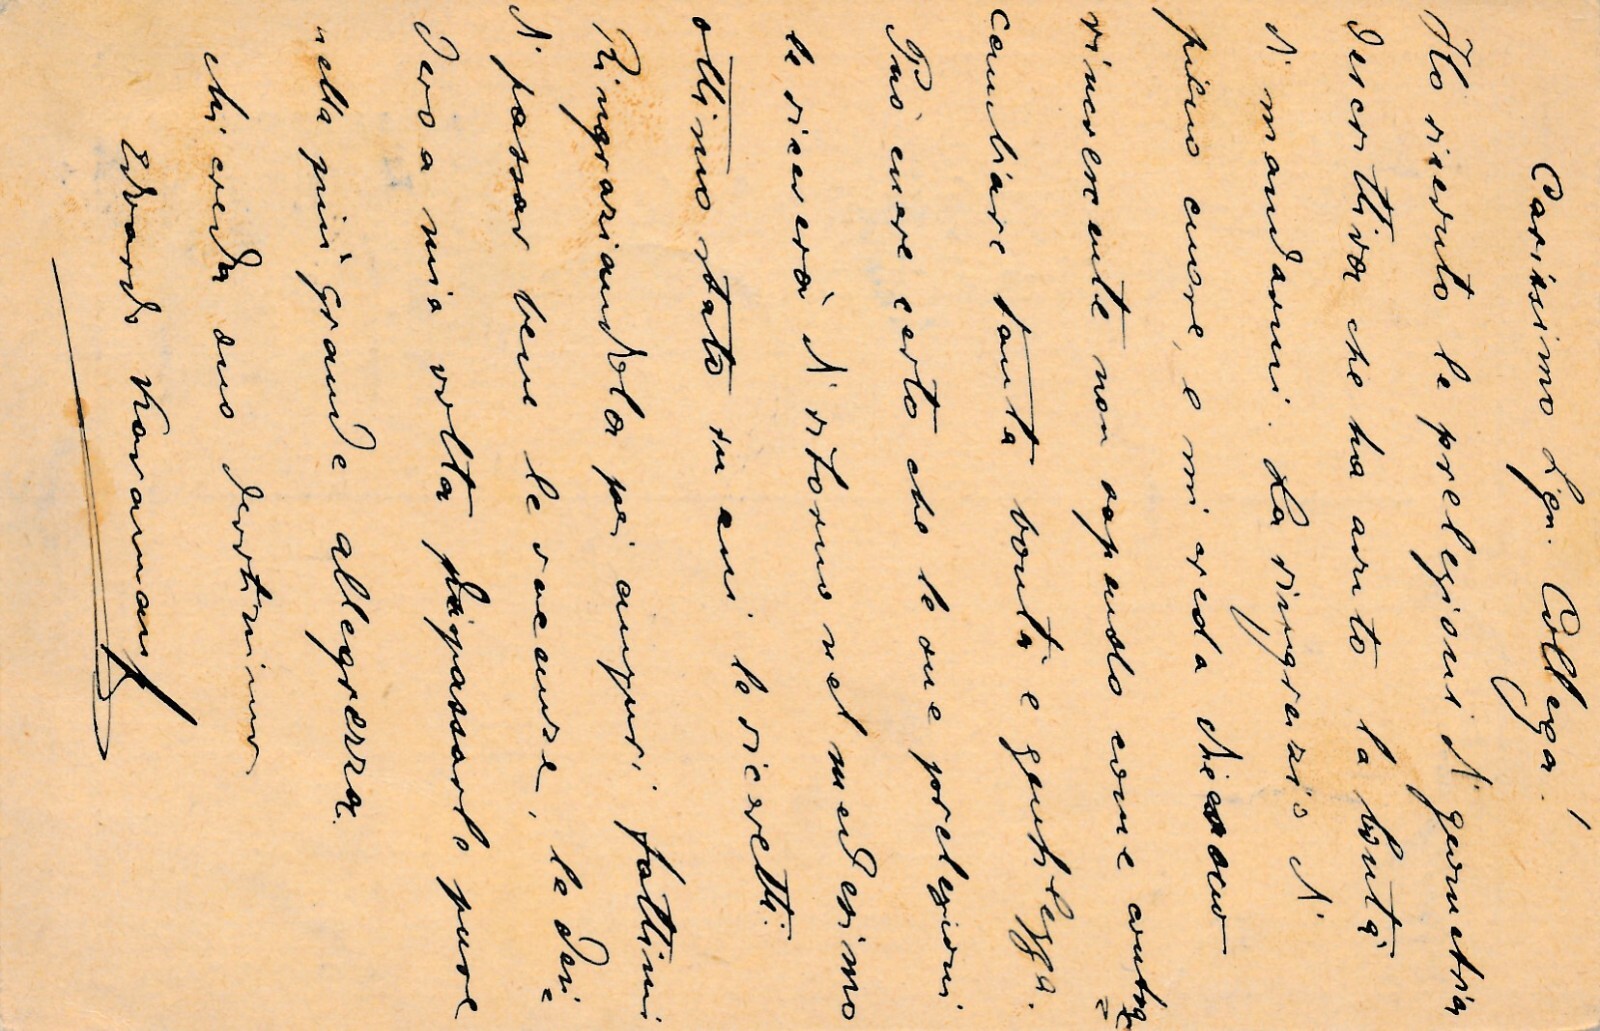 Carissimo Sgn. Collega!
Ho ricevuto le prelezioni di geometria
descrittiva che ha avuto la bontà
di mandarmi. La ringrazio di
pieno cuore, e mi creda che
rincrescente non sapendo come contra=
cambiare tanta bontà e gentilezza.
Può essere certo che le sue prelezioni
le riceverà di ritorno nel medesimo
ottimo stato in cui le ricevetti.
Ringraziandola pei auguri fattimi
di passar bene le vacanze, le desi=
dero a mia volta passarle pure
nella più grande allegrezza.
Mi creda suo devotmimo
Edoardo Karaman